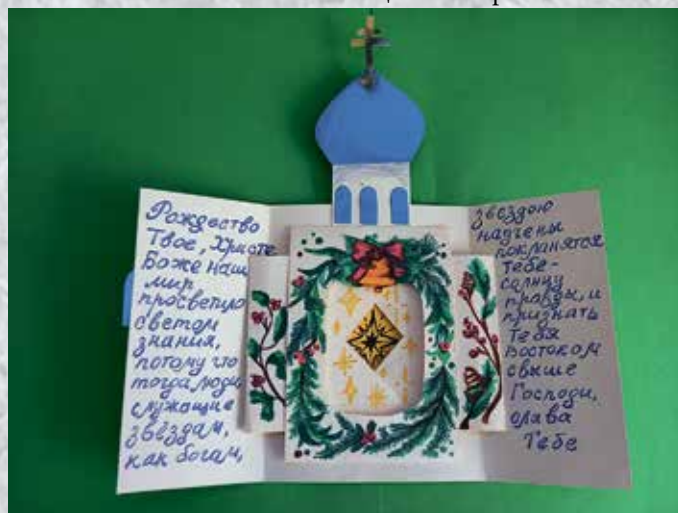 Рождество
Твое, Христе
Боже наш
мир
просветило
светом
знания,
потому что
тогда люди,
служащие
звёздам,
как богам,
звездою
научены
покланятся
тебе -
солнцу
правды, и
признать
Тебя
востоком
свыше
Господи,
слава
Тебе